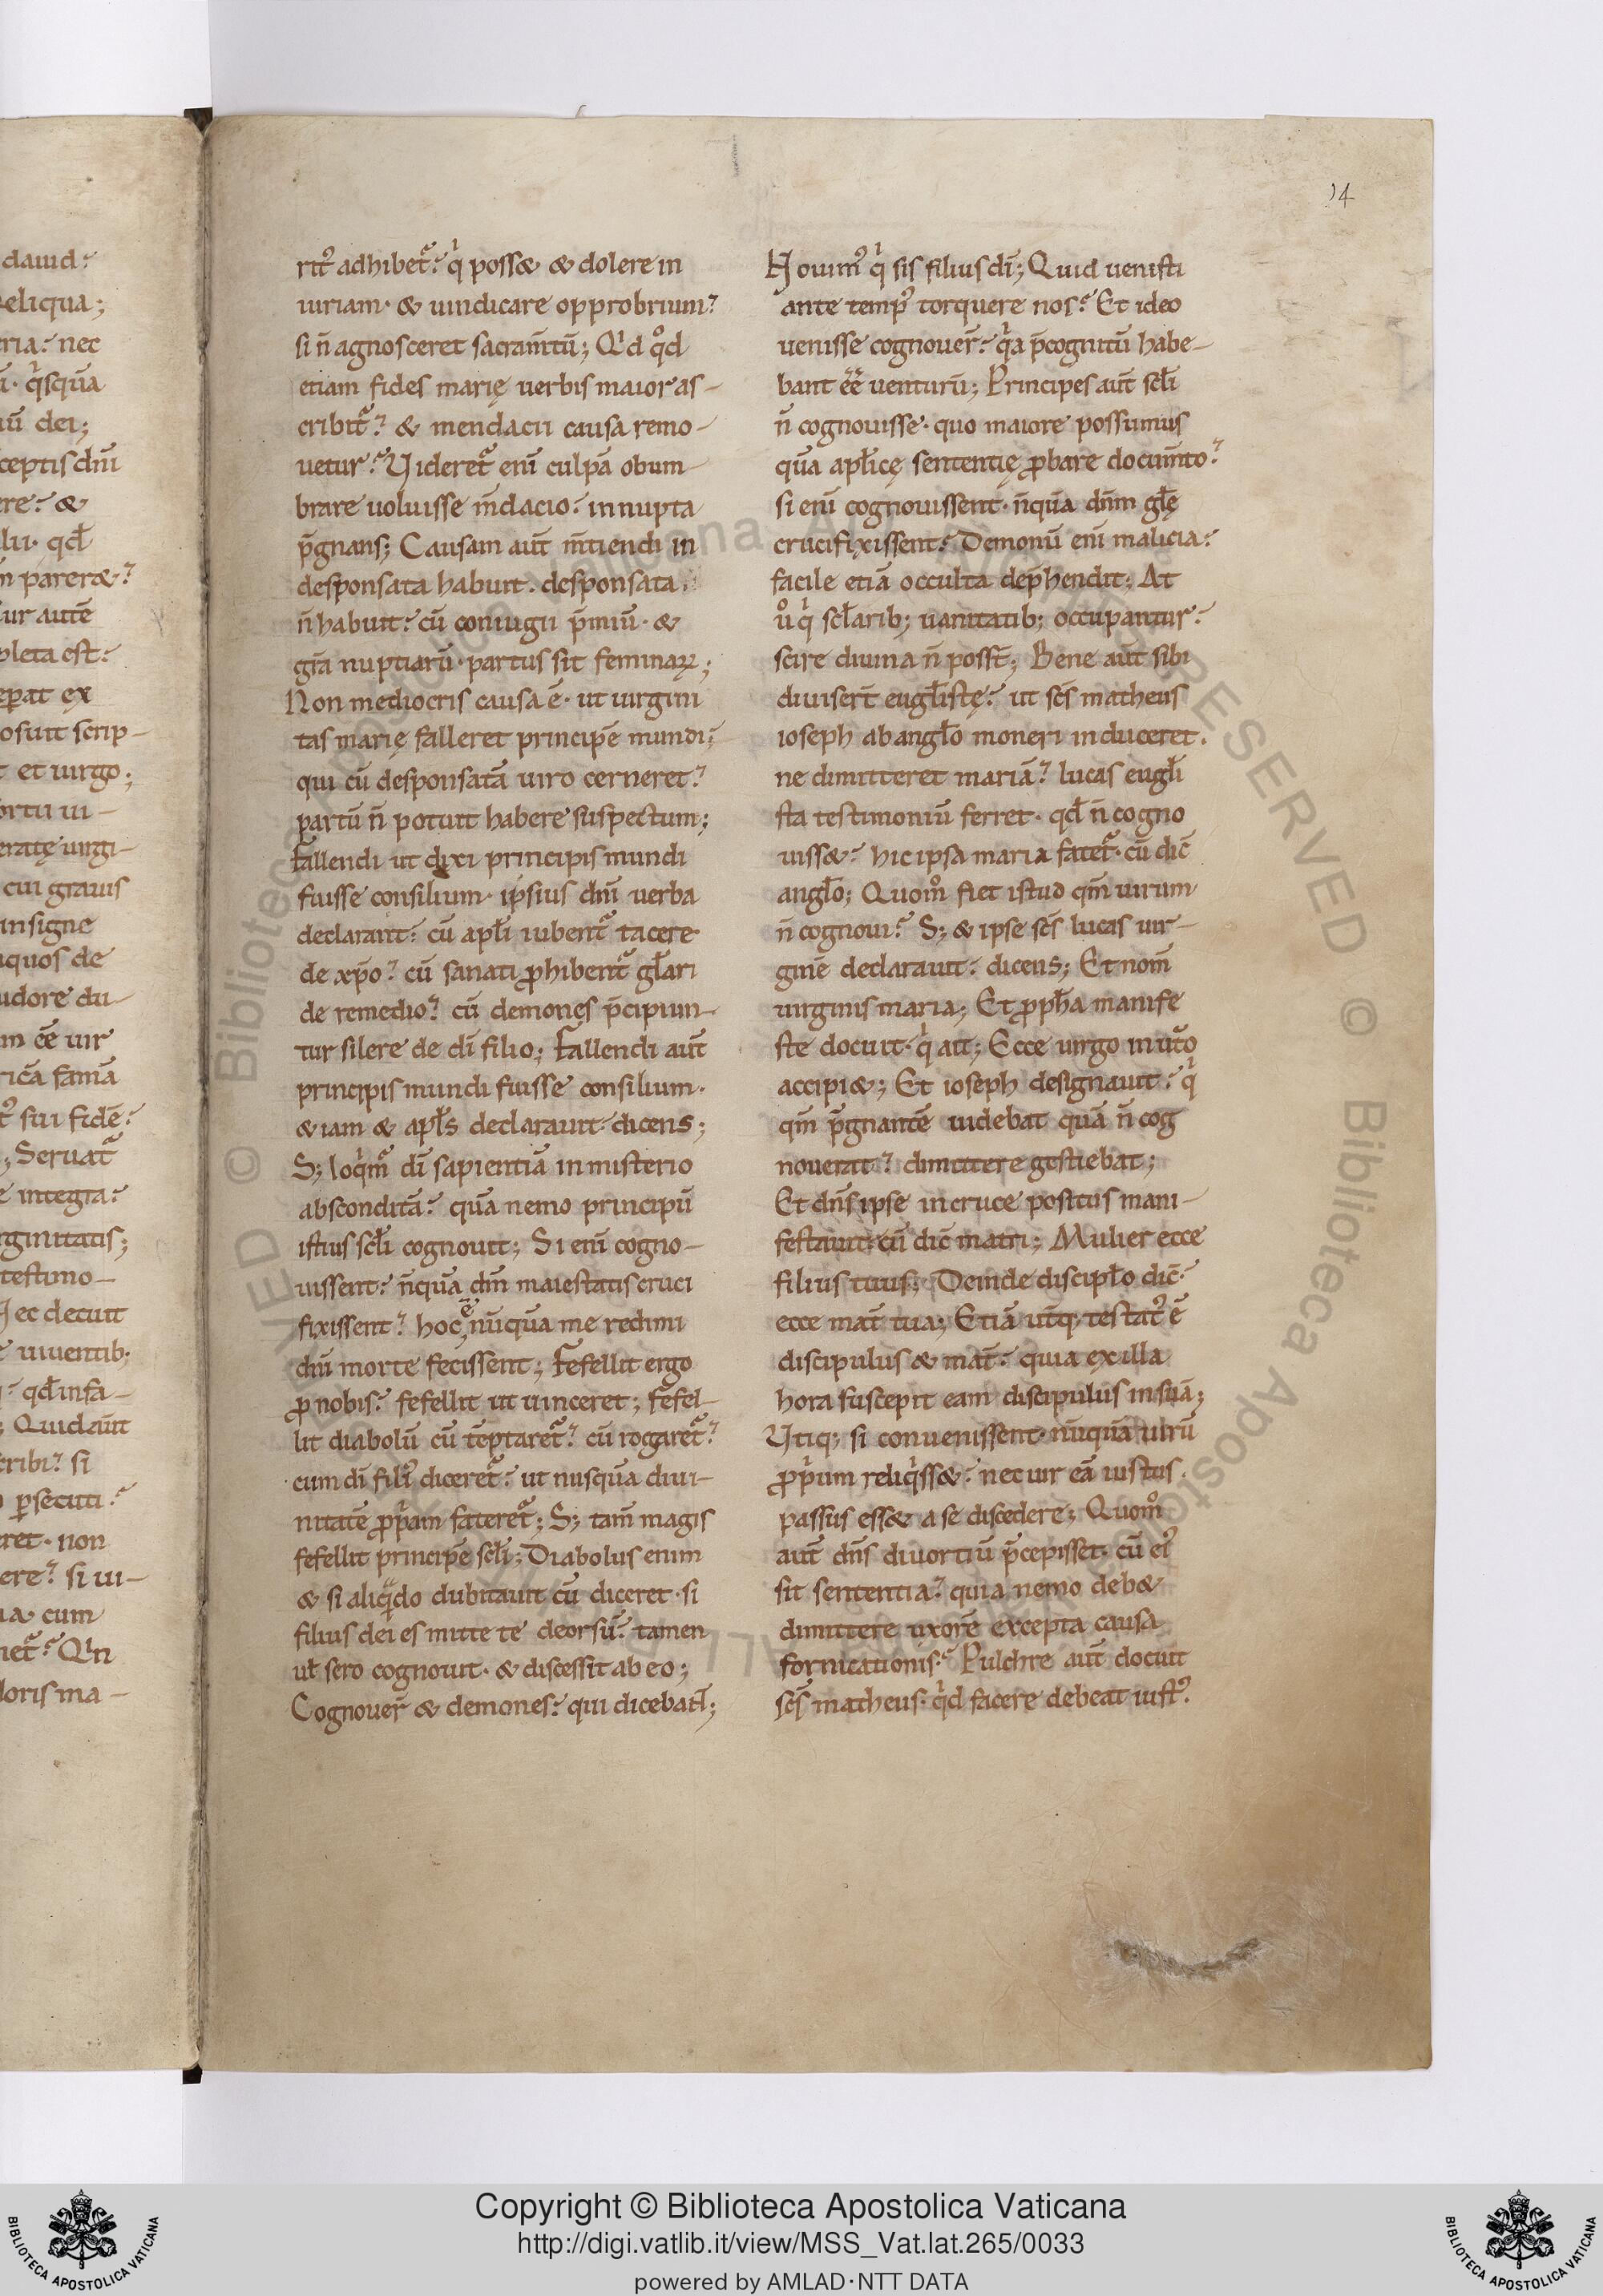 dauid?
reliqua;
eria? nec
ū· q̍sq̄ua
iū dei;
ceptis dn̄i
ere? &
lii· qd̄
n parer&?
ur autē
pleta est?
epat ex
osuit scrip-
t et uirgo;
ortu ui-
eratę uirgi-
cui grauis
insigne
iquos de
udore du-
m eē uir
ricā famā
t᾽ sui fidē?
; Seruat᷑
e integra?
rginitatis;
testimo-
ec decuit
e uiuentib;
? qd̄ infa-
; Quid aūt
cribi? si
p̱secuti?
eret· non
ere? si ui-
ia cum
net᷑? Q̍n
loris ma-
14
rit᾽ adhibet᷑? q̍ poss& & dolere in
iuriam· & uindicare opprobrium?
si n̄ agnosceret sacram̄tū; Q̍d qͦd
etiam fides marię uerbis maior as-
cribit᷑? & mendacii causa remo-
uetur? Uideret᷑ eni̅ culpā obum-
brare uoluisse m̄dacio? innupta
p̄gnans; Causam aūt m̄tiendi in
desponsata habuit. desponsata
n̄ habuit? cū coniugii p̄miū· &
gr̄a nuptiarū· partus sit feminaꝝ;
Non mediocris causa ē· ut uirgini
tas marię falleret principē mundi?
qui cū desponsatā uiro cerneret?
partū n̄ potuit habere suspectum;
Fallendi ut dixi principis mundi
fuisse consilium· ipsius dn̄i uerba
declarant? cū apl̄i iubent᷑ tacere
de xp̄o? cū sanati ꝓhibent᷑ gl̄ari
de remedio? cū demones p̄cipiun-
tur silere de dī filio; Fallendi aūt
principis mundi fuisse consilium·
& iam & apl̄s declarauit· dicens;
S; loq̍m᷑ dī sapientiā in misterio
absconditā? quā nemo principū
istius scl̄i cognouit; Si eni̅ cogno-
uissent? n̄quā dn̄m maiestatis cruci
fixissent? hoc ē nūquā me redimi
dn̄i morte fecissent; Fefellit ergo
ꝓ nobis? fefellit ut uinceret; fefel-
lit diabolū cū tēptaret᷑? cū rogaret᷑?
cum dī fili᾽ diceret᷑? ut nusquā diui-
nitatē ꝓp̍am fateret᷑; S; tam̄ magis
fefellit principē scl̄i; Diabolus enim
& si aliqͣdo dubitauit cū diceret· si
filius dei es mitte te deorsū? tamen
ul̄ sero cognouit· & discessit ab eo;
Cognouer̄ & demones? qui dicebant̄;
Nouim᾽ q̍ sis filius dī; Quid uenisti
ante temp᾽ torquere nos? Et ideo
uenisse cognouer̄? q̍a p̄cognitū habe-
bant eē uenturū; Principes aūt scl̄i
n̄ cognouisse· quo maiore possumus
quā apl̄icę sententię ꝓbare docum̄to?
si eni̅ cognouissent· n̄quā dn̄m gl̄ę
crucifixissent? Demonū eni̅ malicia?
facile etiā occulta dep̄hendit; At
uͦ q̍ scl̄arib; uanitatib; occupantur?
scire diuina n̄ poss̄t; Bene aūt sibi
diuiser̄t eugl̄istę? ut sc̄s matheus
ioseph ab angl̄o moneri induceret.
ne dimitteret mariā? lucas eugl̄i
sta testimoniū ferret· qd̄ n̄ cogno
uiss&? hic ipsa maria fatet᷑· cū dic̄
angl̄o; Quomͦ fiet istud qm̄ uirum
n̄ cognoui? S; & ipse sc̄s lucas uir-
ginē declarauit? dicens; Et nom̄
uirginis maria; Et ꝓph̄a manife
ste docuit· q̍ ait; Ecce uirgo in ut᷑o
accipi&; Et ioseph designauit? q̍
qm̄ p̄gnantē uidebat quā n̄ cog
nouerat? dimittere gestiebat;
Et dn̄s ipse in cruce positus mani-
festauit· cū dic̄ matri; Mulier ecce
filius tuus; Deinde discipl̄o dic̄·
ecce mat̄ tua; Etiā ut̄q; testat᾽ ē
discipulus & mat̄? quia ex illa
hora suscepit eam discipulus in suā;
Utiq; si conuenissent· nūquā uirū
ꝓp̍um reliq̍ss&? nec uir eā iustus
passus ess& a se discedere; Quomͦ
aūt dn̄s diuortiū p̄cepisset· cū ei᾽
sit sententia? quia nemo deb&
dimittere uxorē excepta causa
fornicationis? Pulchre aūt docuit
sc̄s matheus· q̍d facere debeat iust᾽.
Copyright © Biblioteca Apostolica Vaticana
http://digi.vatlib.it/view/MSS_Vat.lat.265/0033
powered by AMLAD·NTT DATA
BIBLIOTECA APOSTOLICA VATICANA
BIBLIOTECA APOSTOLICA VATICANA